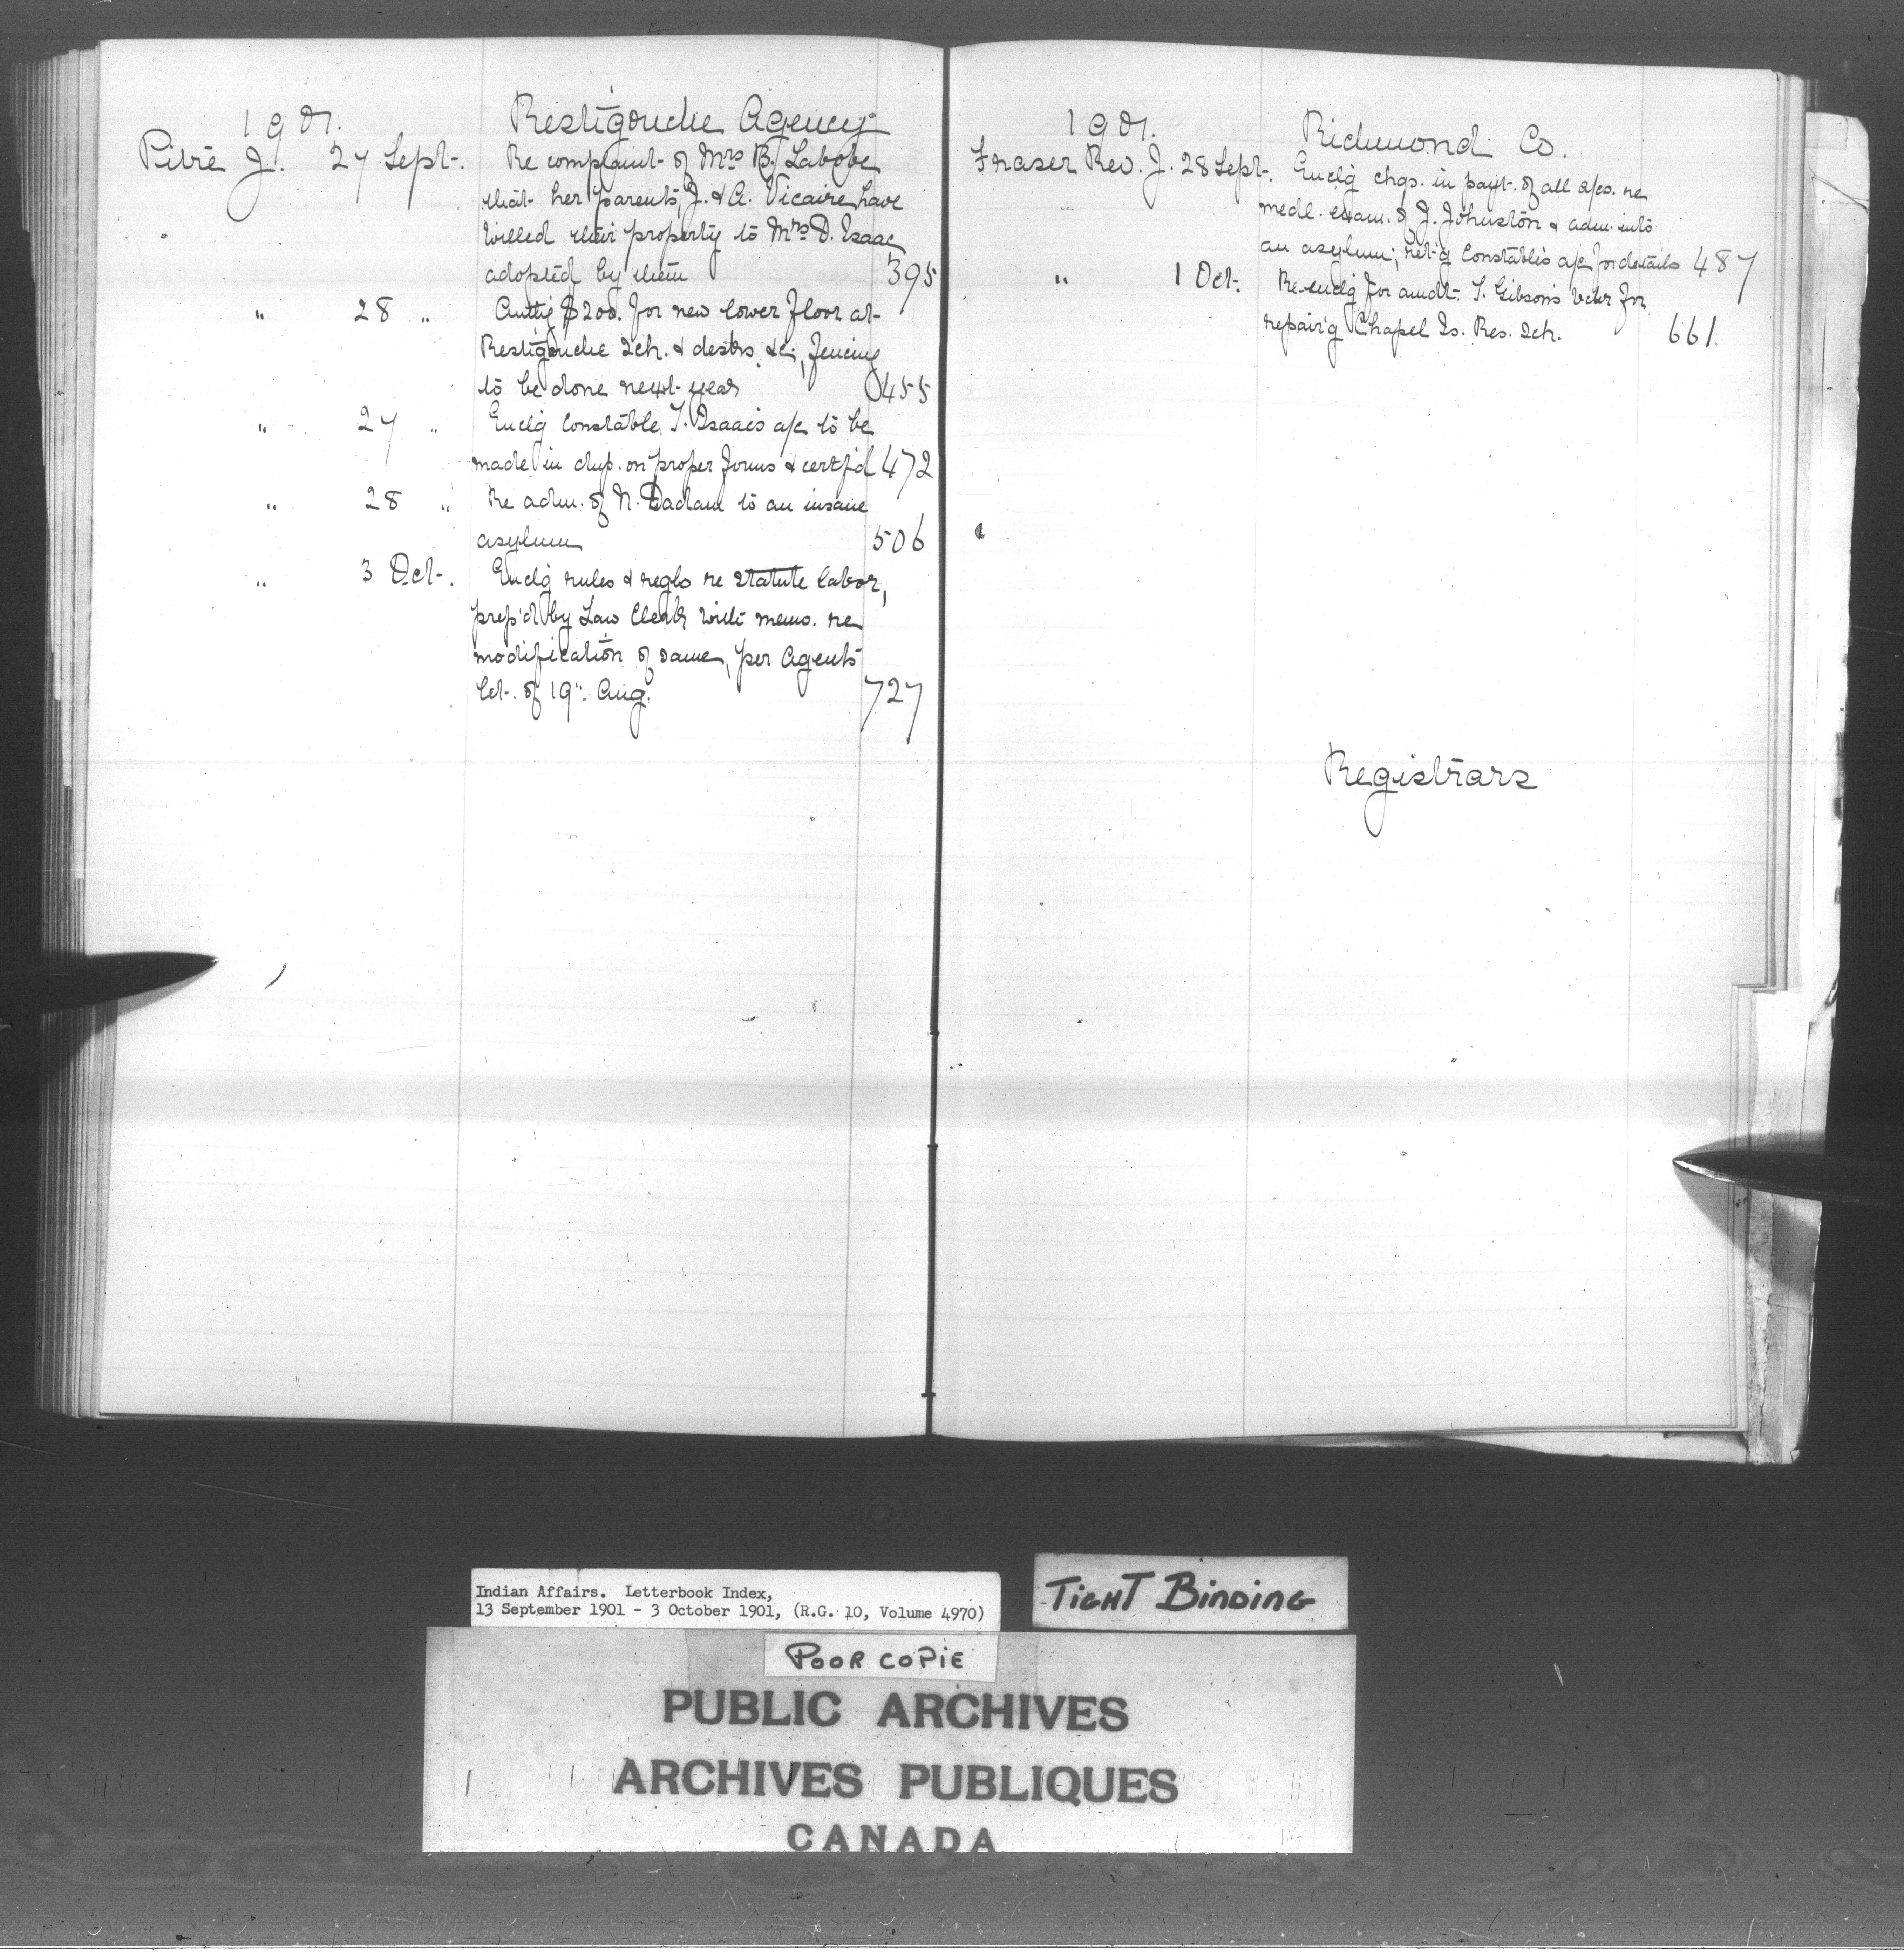 1901. Restigouche Agency
Pitre J. 27 Sept. Re complaint of Mrs B. Labobe
that her parents, J. & A. Vicaire have
willed their property to Mrs D. Isaac
adopted by them 395
" 28 " Authg $200. for new lower floor at
Restigouche Sch. & desks &c; fencing
to be done next year 455
" 27 " Enclg Constable T. Isaac's a/c to be
made in dup. on proper forms & certf'd 472
" 28 " Re adm. of N. to an insane
asylum 506
" 3 Oct. Enclg rules & regls re statute labor,
prep'd by Law Clerk with memo. re
modification of same, per Agent's
let. of 19": Aug. 727
1901. Richmond Co.
Fraser Rev. J. 28 Sept. Enclg chqs. in payt. of all a/cs. re
medl. exam. of J. Johnston & adm. into
an asylum; ret'g Constable's a/c for details 487
" 1 Oct. Re-enclg for amdt. T. Gibson's vchr for
repair'g Chapel Is. Res. Sch. 661.
Registrars
Indian Affairs. Letterbook Index,
13 September 1901 - 3 October 1901, (R.G. 10, Volume 4970)
TIGHT BINDING
POOR COPIE
PUBLIC ARCHIVES
ARCHIVES PUBLIQUES
CANADA